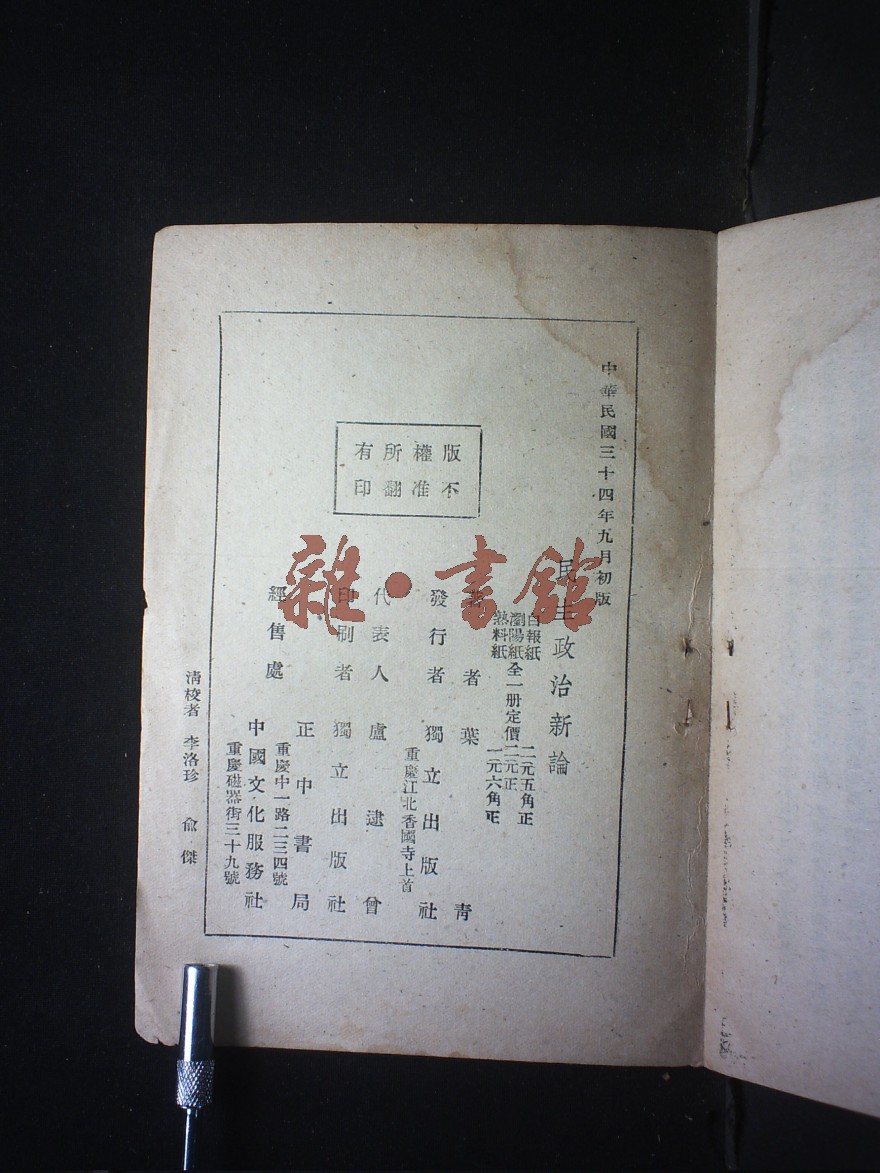 中華民國三十四年九月初版
版權所有
不准翻印
民主政治新論
白報紙
瀏陽紙
熱料紙
全一册定價
二元五角正
二元正
一元六角正
著者 葉青
發行者 獨立出版社
重慶江北香國寺上首
代表人 盧逮曾
印刷者 獨立出版社
經售處
正中書局
重慶中一路二三四號
中國文化服務社
重慶磁器街三十九號
清校者 李洛珍 俞傑
雜·書館